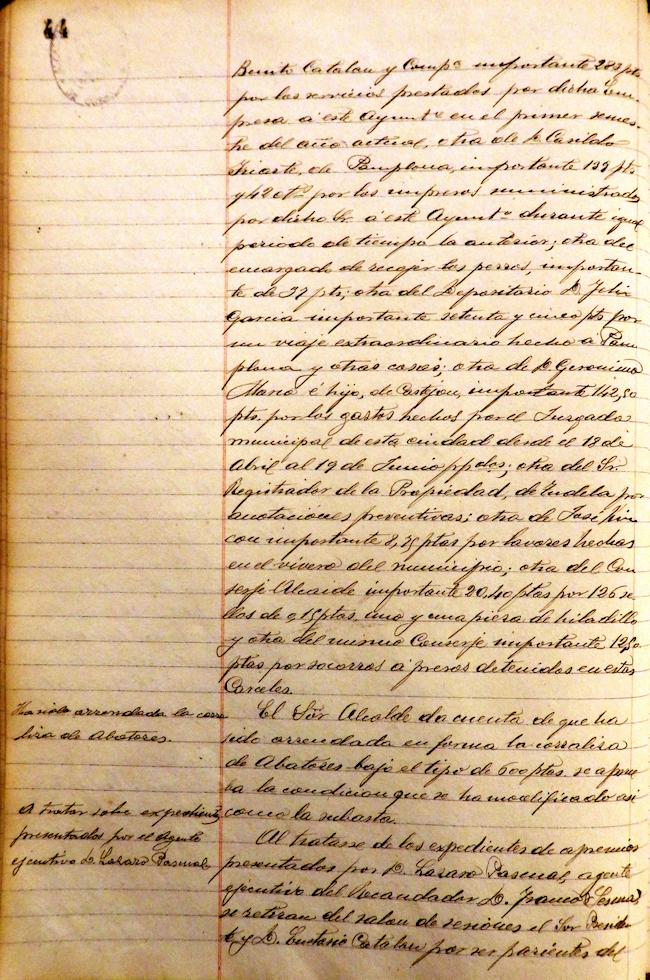 44
Benito Catalan y Compª importante 283 pts
por los servicios prestados por dicha Em-
presa á este Ayuntº en el primer semes-
tre del año actual, otra de D. Casildo
Iriarte, de Pamplona, importante 139 pts
y 42 cts por los impresos suministrados
por dicho Sr. á este Ayuntº durante igual
periodo de tiempo la anterior; otra del
encargado de recojer los perros, importan-
te de 27 pts; otra del Depositario D. Felix
Garcia importante setenta y cinco pts por
un viaje extraordinario hecho a Pam-
plona y otras cosas; otra de D. Geronimo
é hijo, de Castejon, importante 142,50
pts. por los gastos hechos por el Juzgado
municipal de esta ciudad desde el 18 de
Abril al 19 de Junio ppdos; otra del Sr.
Registrador de la Propiedad, de Tudela por
anotaciones preventivas; otra de José Rin-
con importante 2,25 ptas por lavores hechas
en el vivero del municipio; otra del Con-
serje Alcaide importante 20,40 ptas por 126 se-
llos de 0,15 ptas. uno y una pieza de hiladillo
y otra del mismo Conserje importante 12,50
ptas por socorros á presos detenidos en estas
Carceles.
Ha sido arrendada la corra-
liza de Abatores.
El Sor Alcalde da cuenta de que ha
sido arrendada en forma la corraliza
de Abatores bajo el tipo de 600 ptas. se aprue-
ba la condicion que se ha modificado asi
como la subasta.
A tratar sobe expedientes
presentados por el Agente
ejecutivo D. Lazaro Pascual
Al tratarse de los expedientes de apremios
presentados por D. Lazaro Pascual, agente
ejecutivo del Recaudador D. Franco Lesma,
se retiran del salon de sesiones el Sor Beni-
to y D. Eustasio Catalan por ser parientes del